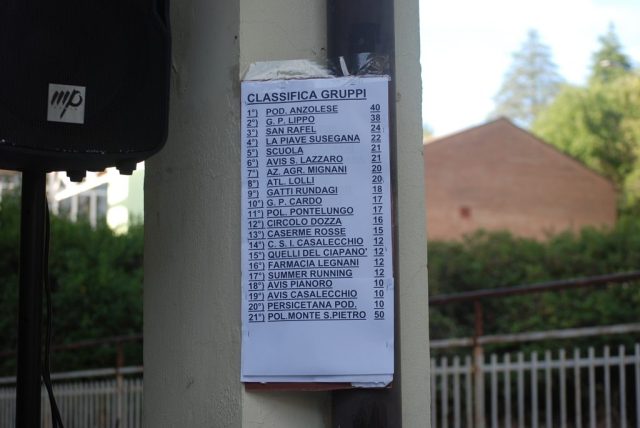 mp
CLASSIFICA GRUPPI
1°) POD. ANZOLESE 40
2°) G. P. LIPPO 38
3°) SAN RAFEL 24
4°) LA PIAVE SUSEGANA 22
5°) SCUOLA 21
6°) AVIS S. LAZZARO 21
7°) AZ. AGR. MIGNANI 20
8°) ATL. LOLLI 20
9°) GATTI RUNDAGI 18
10°) G.P. CARDO 17
11°) POL. PONTELUNGO 17
12°) CIRCOLO DOZZA 16
13°) CASERME ROSSE 15
14°) C. S. I. CASALECCHIO 12
15°) QUELLI DEL CIAPANO' 12
16°) FARMACIA LEGNANI 12
17°) SUMMER RUNNING 12
18°) AVIS PIANORO 10
19°) AVIS CASALECCHIO 10
20°) PERSICETANA POD. 10
21°) POL.MONTE S.PIETRO 50